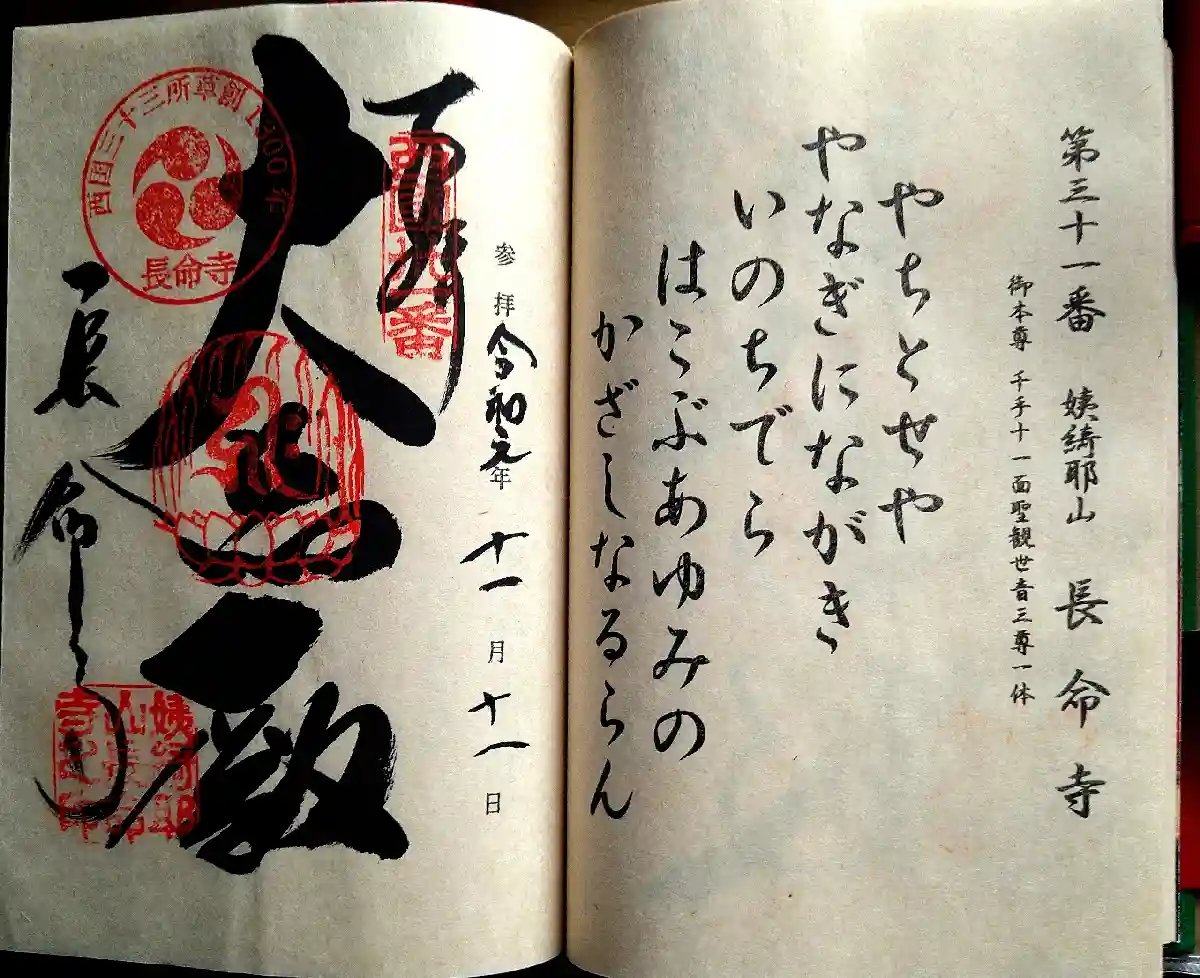 第三十一番 姨綺耶山 長命寺
御本尊 千手十一面聖観世音三尊一体
やちとせや
やなぎにながき
いのちでら
はこぶあゆみの
かざしなるらん
参拝 令和元年 十一月 十一日
奉拝
大悲殿
長命寺
西国三十三所草創1300年
長命寺